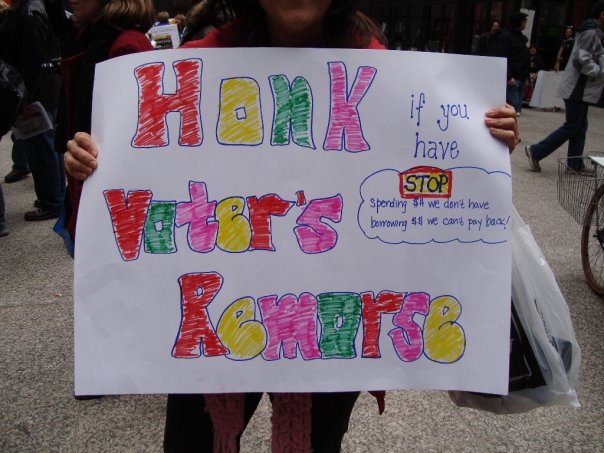 Honk
if you
have
Voter's
Remorse
STOP
Spending $$ we don't have
borrowing $$ we can't pay back!